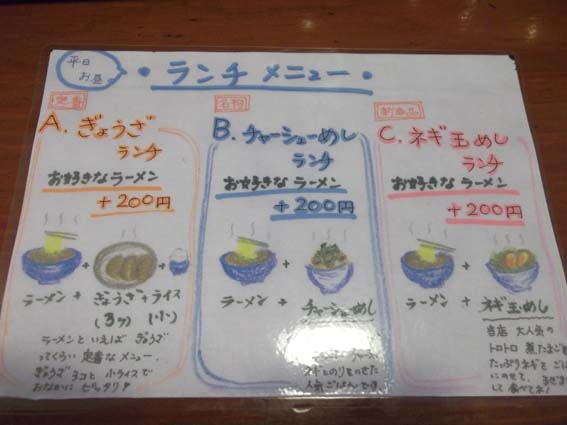 平日
お昼
・ランチメニュー・
定番
A. ぎょうざ
ランチ
お好きなラーメン
+200円
ラーメン + ぎょうざ+ライス
(3ケ) (小)
ラーメンといえば ぎょうざ
ってくらい 定番なメニュー.
ぎょうざ 3コと 小ライスで
おなかに ピッタリ!
名物
B. チャーシューめし
ランチ
お好きなラーメン
+200円
ラーメン + チャーシューめし
ネギとのりをのせた
人気ごはんです
新商品
C. ネギ玉めし
ランチ
お好きなラーメン
+200円
ラーメン + ネギ玉めし
当店 大人気の
トロトロ 煮たまご
たっぷりネギと ご
にのせて、まぜま
して 食べてネ!